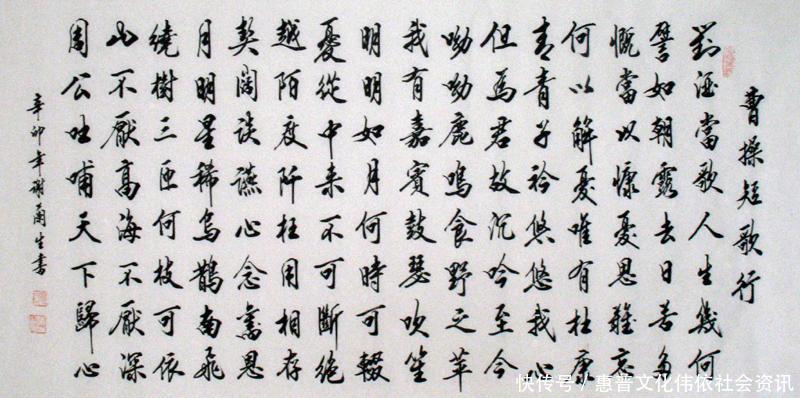 曹操短歌行
對酒當歌人生幾何
譬如朝露去日苦多
慨當以慷憂思難忘
何以解憂唯有杜康
青青子衿悠悠我心
但為君故沉吟至今
呦呦鹿鳴食野之苹
我有嘉賓鼓瑟吹笙
明明如月何時可輟
憂從中来不可斷絕
越陌度阡枉用相存
契闊談讌心念舊恩
月明星稀烏鵲南飛
繞樹三匝何枝可依
山不厭高海不厭深
周公吐哺天下歸心
辛卯年謝生書
快传号 / 惠普文化伟依社会资讯